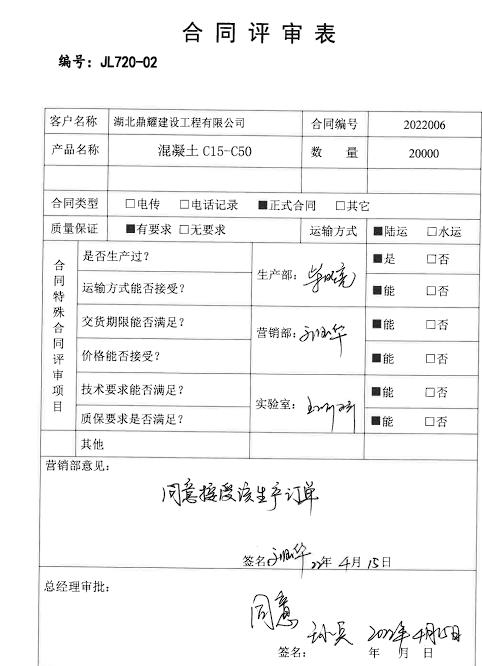 合同评审表
编号：JL720-02
客户名称 湖北鼎耀建设工程有限公司 合同编号 2022006
产品名称 混凝土 C15-C50 数 量 20000
合同类型 □电传 □电话记录 ■正式合同 □其它
质量保证 ■有要求 □无要求 运输方式 ■陆运 □水运
合同特殊合同评审项目
是否生产过? 生产部： ■是 □否
运输方式能否接受? ■能 □否
交货期限能否满足? 营销部： ■能 □否
价格能否接受? ■能 □否
技术要求能否满足? 实验室： ■能 □否
质保要求是否满足? ■能 □否
其他
营销部意见：
同意接受该生产订单
签名: 22年4月15日
总经理审批：
同意
2022年4月15日
签名： 年 月 日